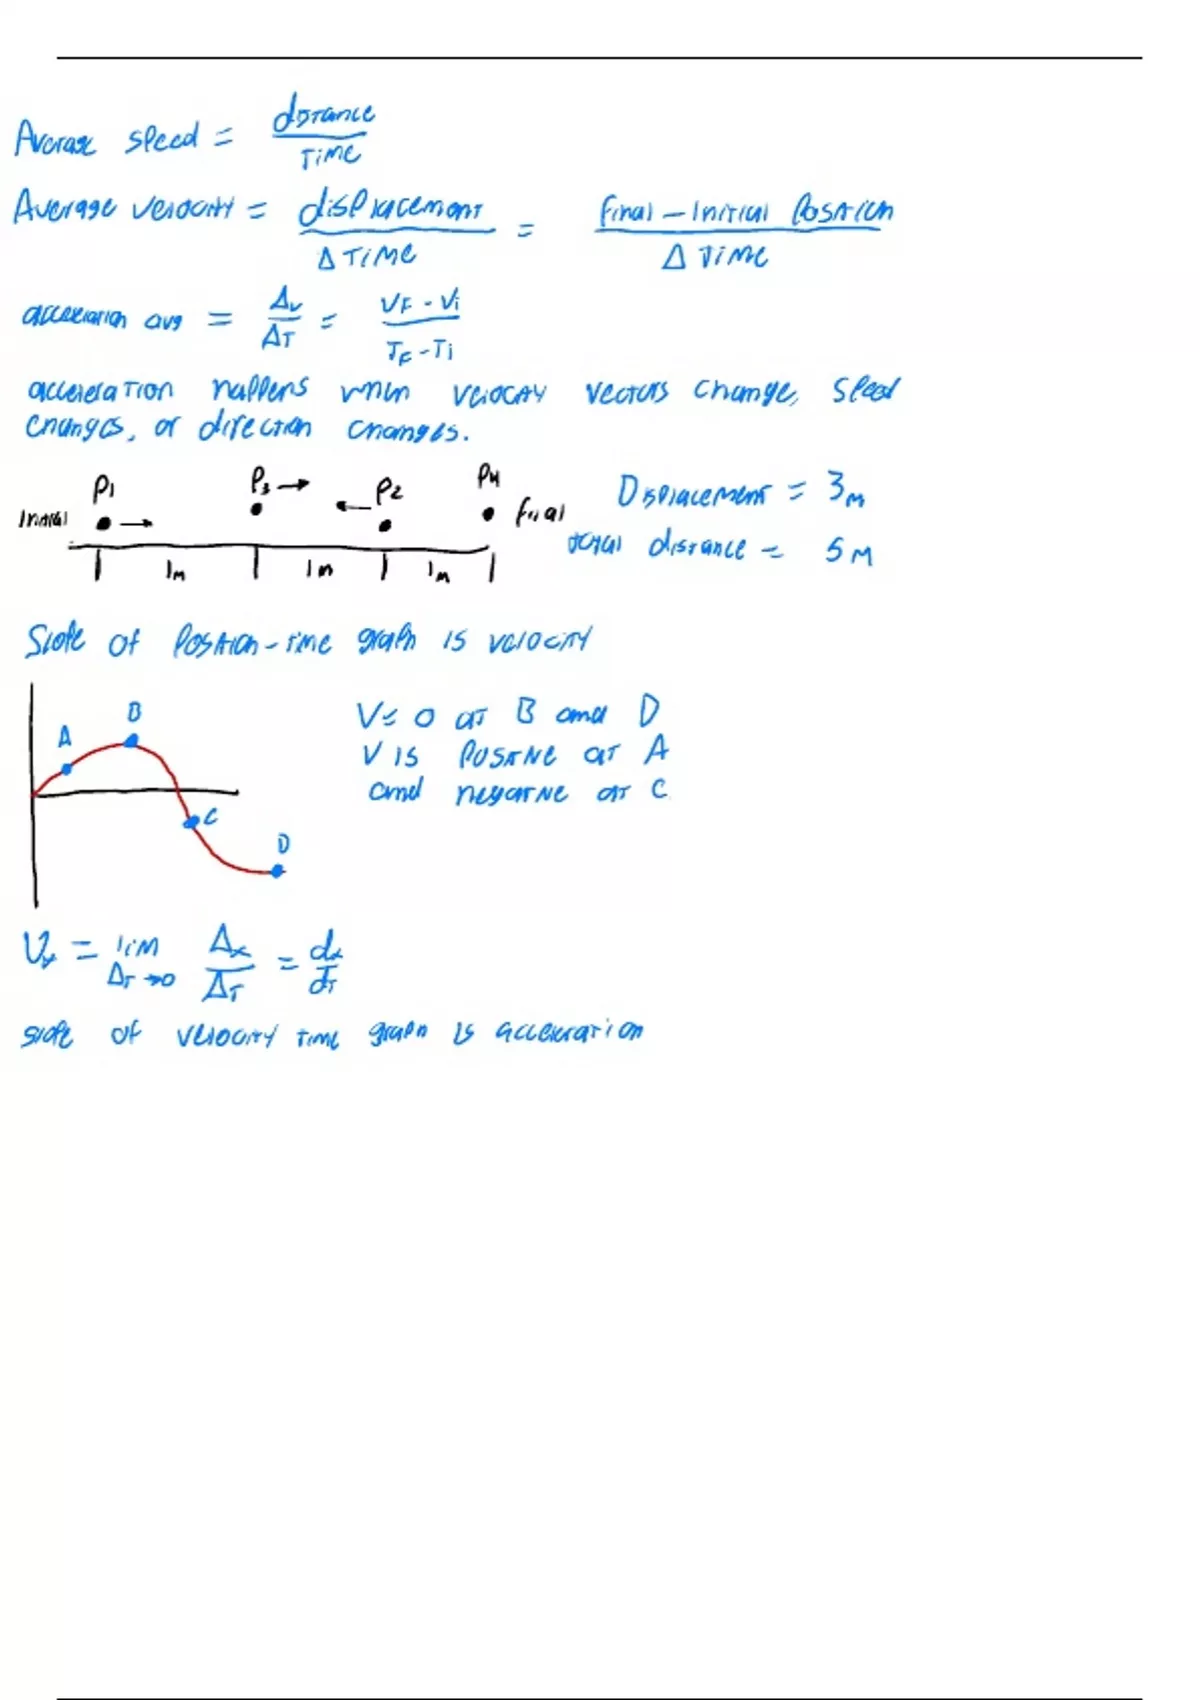 Average speed = distance / Time
Average velocity = displacement / ΔTime = final - initial Position / ΔTime
acceleration avg = Δv / ΔT = VF - Vi / TF - Ti
acceleration happens when velocity vectors change, speed
changes, or direction changes.
P1 P3 → ← P2 P4
Initial → final
1m 1m 1m
Displacement = 3m
total distance = 5m
Slope of Position-time graph is velocity
A B C D
V = 0 at B and D
V is positive at A
and negative at C
Vx = lim ΔT→0 Δx / ΔT = dx / dT
slope of velocity time graph is acceleration